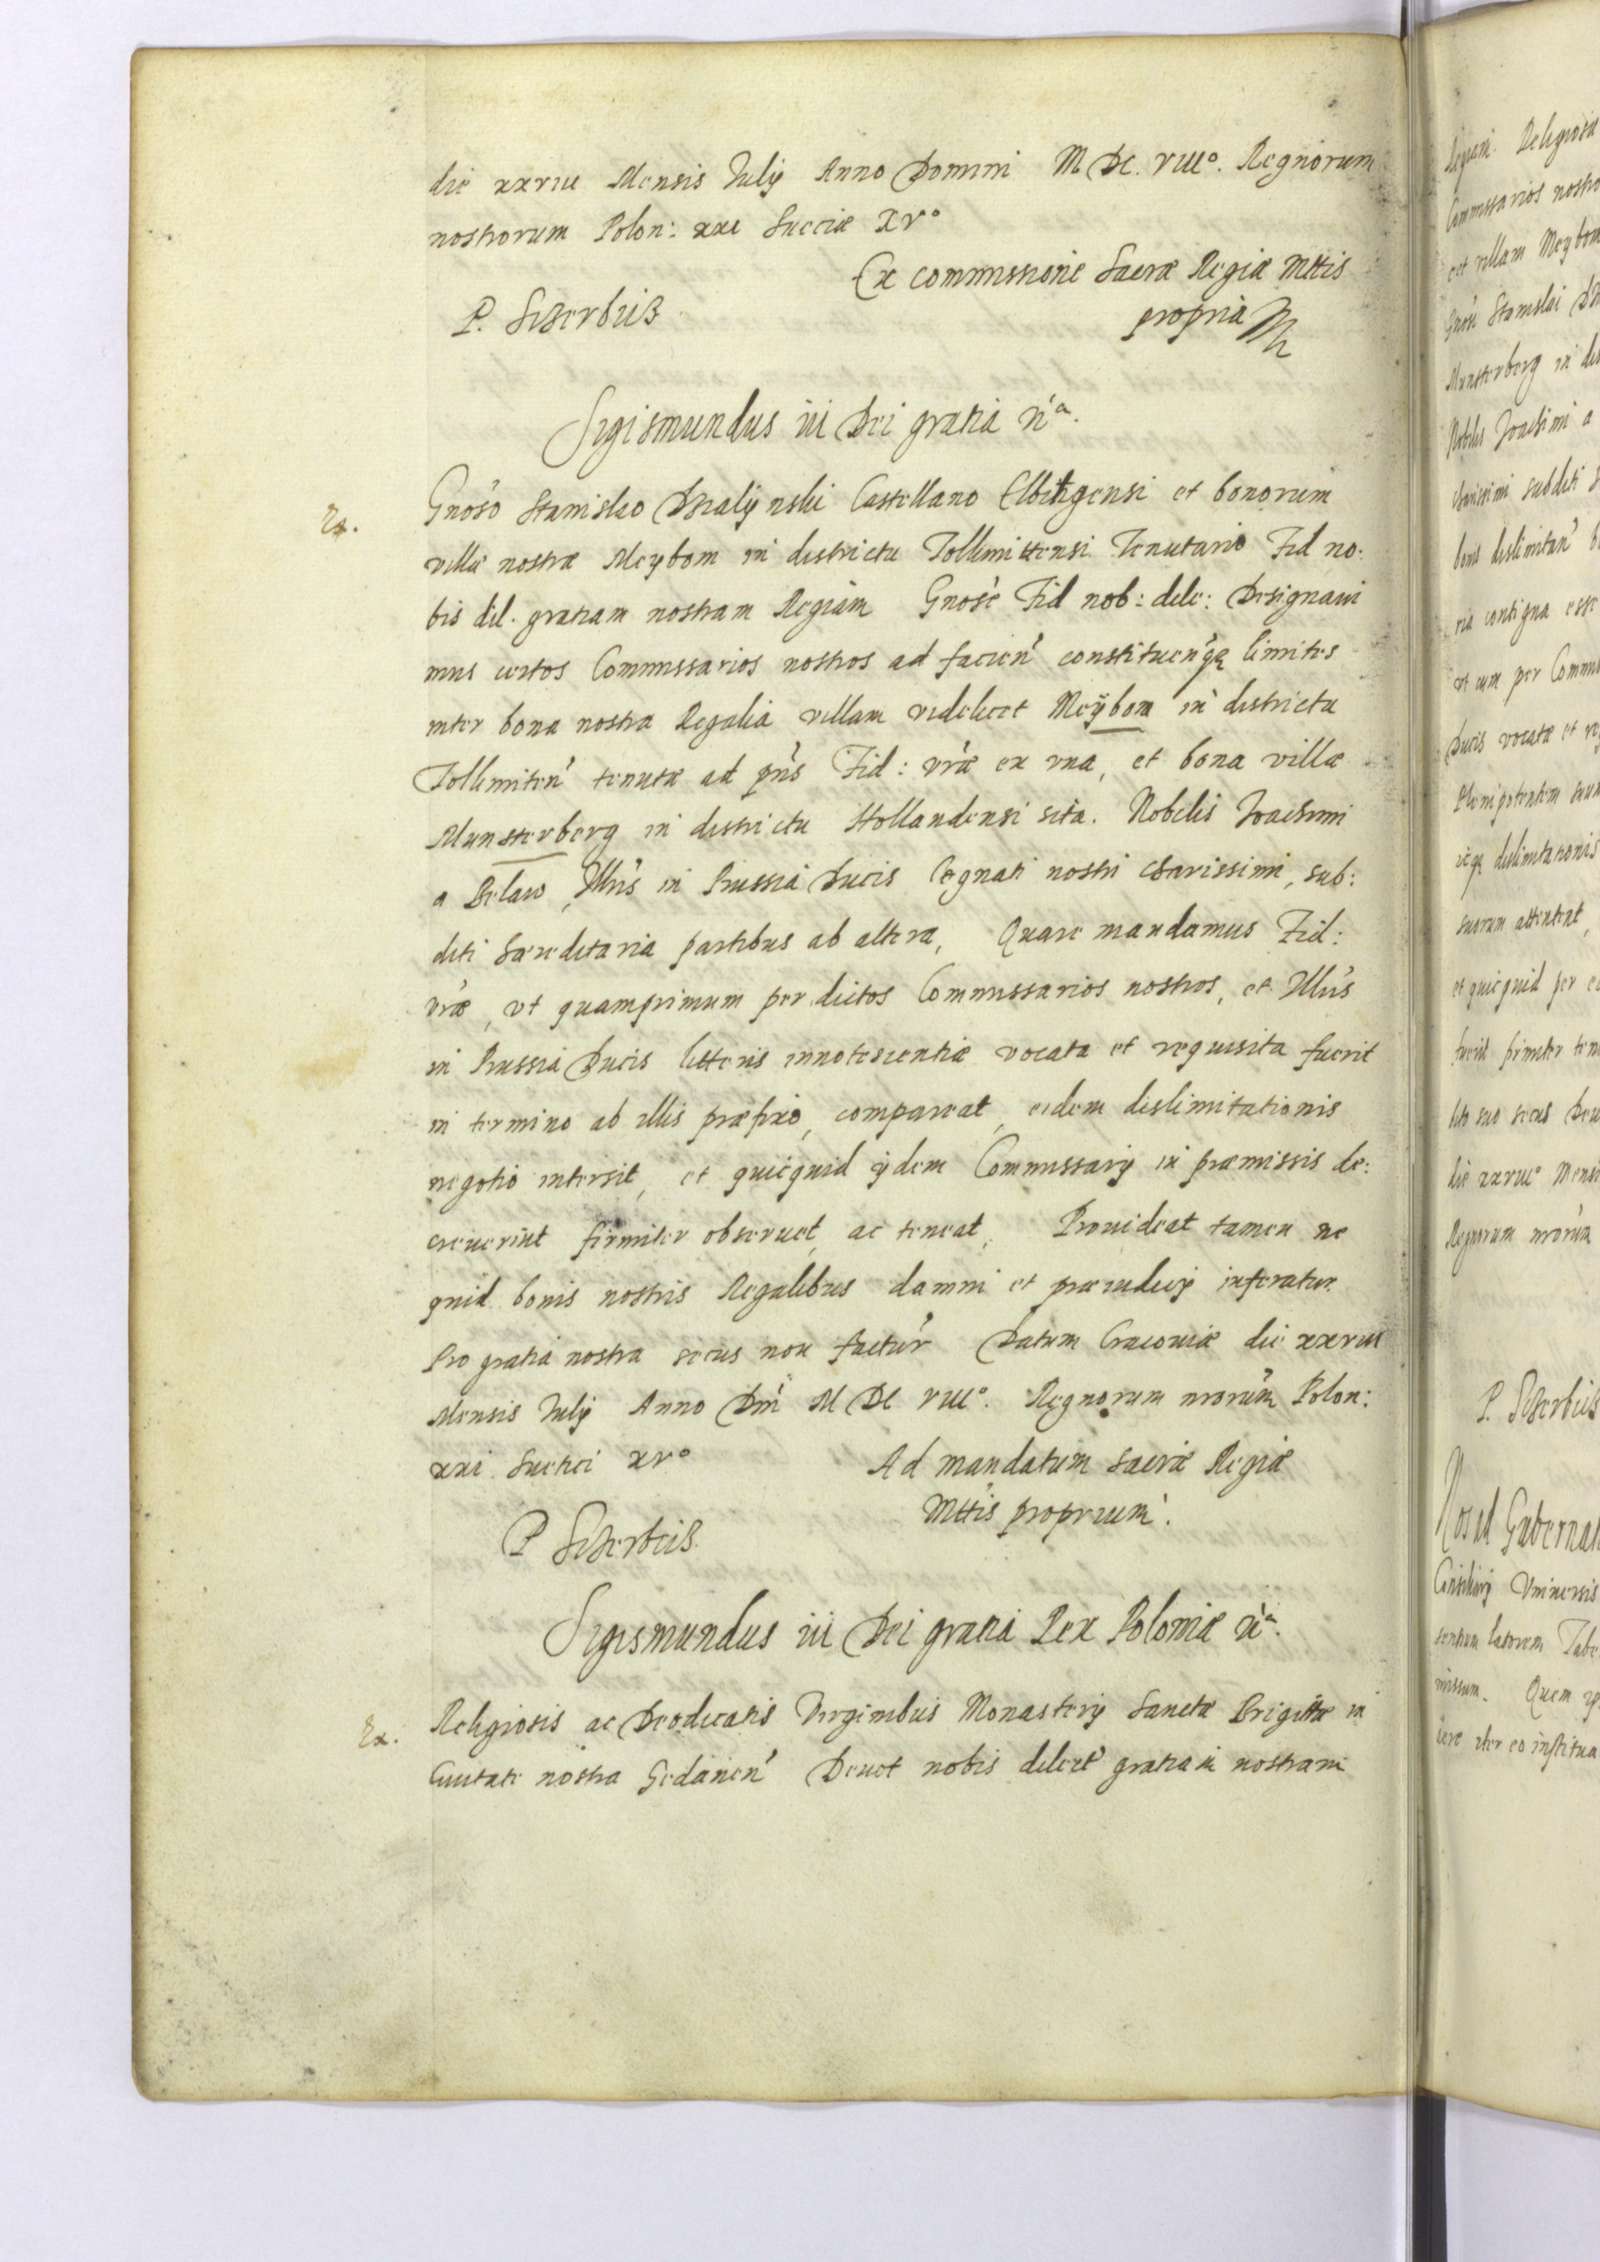 die xxviii Mensis Julÿ Anno Domini M DC. VIII°. Regnorum
nostrorum Polon: xxi Sueciæ XV°
Ex commissione Sacræ Regiæ Mttis
propria
P. Sczerbicz
Sigismundus iii Dei gratia
Ex.
Gnoso Stanislao Dzialÿnski Castellano Elbingensi et bonorum
villæ nostræ Meybom in districtu Tollimittensi Tenutario Fid no-
bis dil. gratiam nostram Regiam Gnose Fid nob: dile: Designaui
mus certos Commissarios nostros ad facien constituenq limites
inter bona nostra Regalia villam videlicet Meÿbom in districtu
Tollimiten tenutæ ad pns Fid: vræ ex vna, et bona villæ
Munsterberg in districtu Hollandensi sita. Nobilis Joachimi
a Belaw, Illris in Prussia Ducis Cognati nostri charissimi, sub:
diti hæreditaria partibus ab altera, Quare mandamus Fid:
vræ, vt quamprimum per dictos Commissarios nostros, et Illris
in Prussia Ducis litteris innotescentiæ vocata et requisita fuerit
in termino ab illis præfixo, compareat, eidem dislimitationis
negotio intersit, et quicquid ÿdem Commissarÿ in præmissis de:
creuerint firmiter obseruet, ac teneat, Prouideat tamen ne
quid bonis nostris Regalibus damni et præiudicÿ inferatur
Pro gratia nostra secus non factur Datum Cracouiæ die xxviii
Mensis Julÿ Anno Dni M DC VIII°. Regnorum nrorum Polon:
xxi Suetici xv°
Ad mandatum sacræ Regiæ
Mttis proprium.
P Sczerbicz.
Sigismundus iii Dei gratia Rex Poloniæ
Ex.
Religiosis ac Deodicatis Virginibus Monasterÿ Sanctæ Brigittæ in
Ciuitate nostra Gedanen Deuot nobis dilect gratiam nostram
Religiosa
Commissarios nostro
et villam Meybom
Gnosi Stanislai
Munsterberg in dis
Nobilis Joachimi a
charissimi subditi
bonis dislimitan
ria contigua esse
vt cum per Commis
Ducis vocatæ et
Plenipotentem suum
dislimitationis
suorum attentent,
et quicquid per
fuerit firmiter
secus
die xxviii° Mensi
Regnorum nrorum
P. Sczerbicz
Nos Gubernat
Consiliarÿ Vniuersis
latorem
missum. Quem
iter eo institua